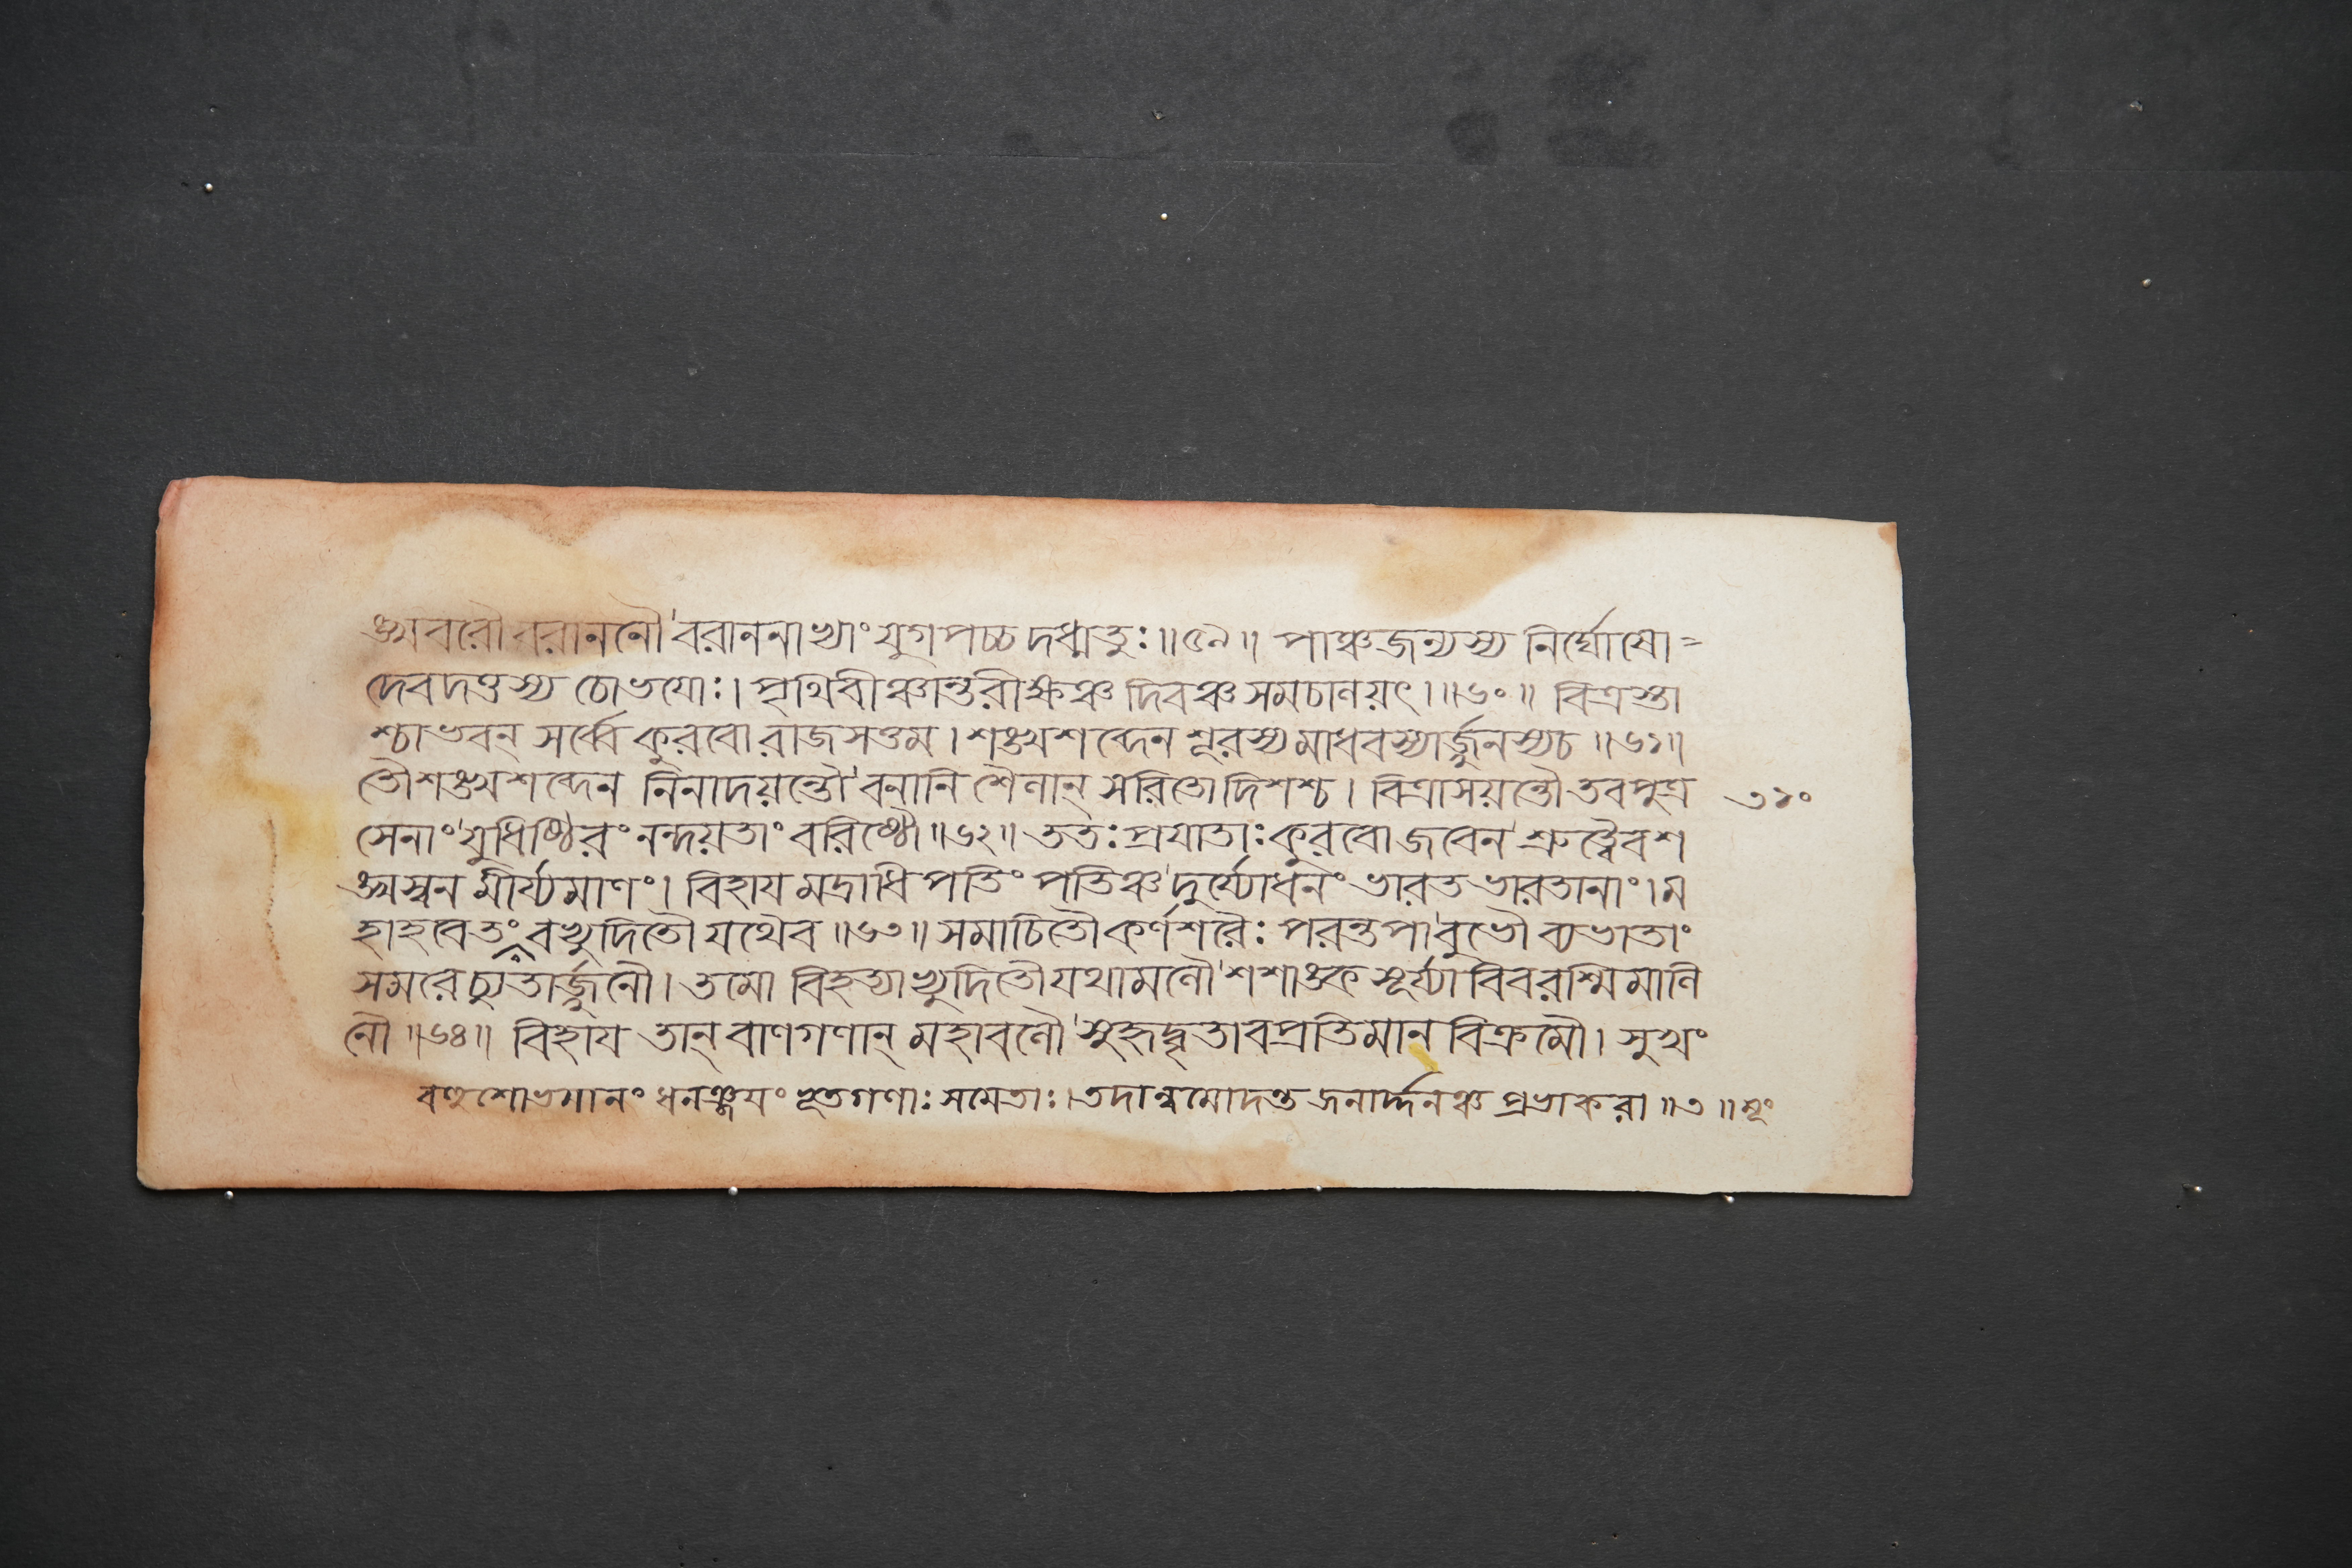 ঙ্খবরৌ বরাননৌ বরাননাখ্যাং যুগপচ্চ দধ্মতুঃ॥৫৯॥ পাঞ্চজন্যস্য নির্ঘোষো=
দেবদত্তস্য চোভযোঃ। পৃথিবীঞ্চান্তরীক্ষঞ্চ দিবঞ্চ সমচানয়ৎ।॥৬০॥ বিত্রস্তা
শ্চাভবন্ সর্ব্বে কুরবো রাজসত্তম। শঙ্খশব্দেন শূরস্য মাধবস্যার্জ্জুনস্যচ॥৬১॥
তৌশঙ্খশব্দেন নিনাদয়ন্তৌ বনানি শৈলান্ সরিতো দিশশ্চ। বিত্রাসয়ন্তৌ তবপুত্র ৩১০
সেনাং যুধিষ্ঠিরং নন্দয়তাং বরিষ্ঠৌ॥৬২॥ ততঃ প্রযাতাঃ কুরবো জবেন শ্রুত্বৈবশ
ঙ্খস্বন মীর্য্যমাণং। বিহায মদ্রাধিপতিং পতিঞ্চ দুর্য্যোধনং ভারত ভারতানাং। ম
হাহবেতং বখুদিতৌ যথৈব॥৬৩॥ সমাচিতৌ কর্ণশরৈঃ পরন্তপা বুভৌ ব্যভাতাং
সমরেচ্যুতার্জ্জুনৌ। তমো বিহত্যাখুদিতৌ যথামলৌ শশাঙ্ক সূর্য্যা বিবরশ্মিমালি
নৌ॥৬৪॥ বিহায তান্ বাণগণান্ মহাবলৌ সুহৃদ্বৃতাবপ্রতিমান বিক্রমৌ। সুখং
বহুশোভমানং ধনঞ্জযং ভূতগণাঃ সমেতাঃ। তদান্বমোদন্ত জনার্দ্দনঞ্চ প্রভাকরা॥৩॥ মূং